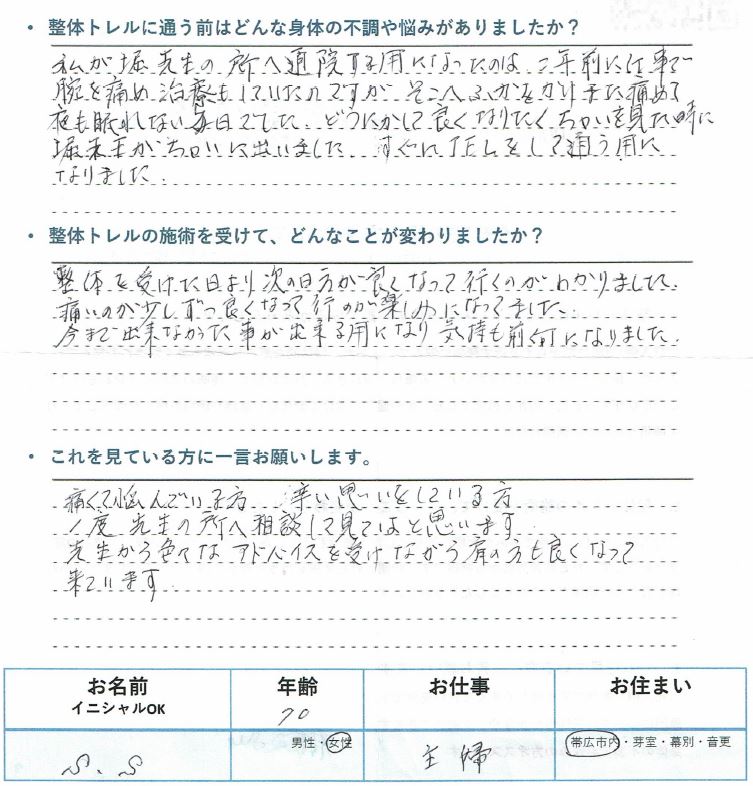 ・ 整体トレルに通う前はどんな身体の不調や悩みがありましたか？
私が堀先生の所へ通院する用になったのは 二年前に仕事で
腕を痛め 治療もしていたのですが そこへふかをかけまた痛めて
夜も眠れない毎日でした どうにかして良くなりたく ちらしを見た時に
堀先生がちらしに出いました すぐにTELをして通う用に
なりました.
・ 整体トレルの施術を受けて、どんなことが変わりましたか？
整体を受けた日より次の日方が良くなって行くのがわかりました.
痛いのが少しずつ良くなって行のが楽しみになってました.
今まで出来なかった事が出来る用になり 気持も前向になりました.
・ これを見ている方に一言お願いします。
痛くて悩んでいる方 辛い思いをしている方
1度 先生の所へ相談して見てはと思います
先生から色々なアドバイスを受けながら肩の方も良くなって
来ています
お名前 年齢 お仕事 お住まい
イニシャルOK 70
男性・女性 帯広市内・芽室・幕別・音更
S.S 主婦